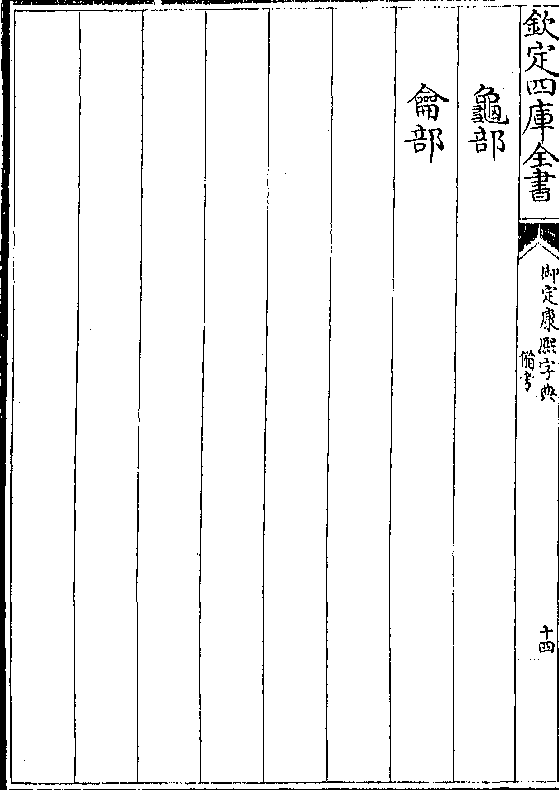 欽定四庫全書
御定康熙字典
備考
十四
龜部
龠部